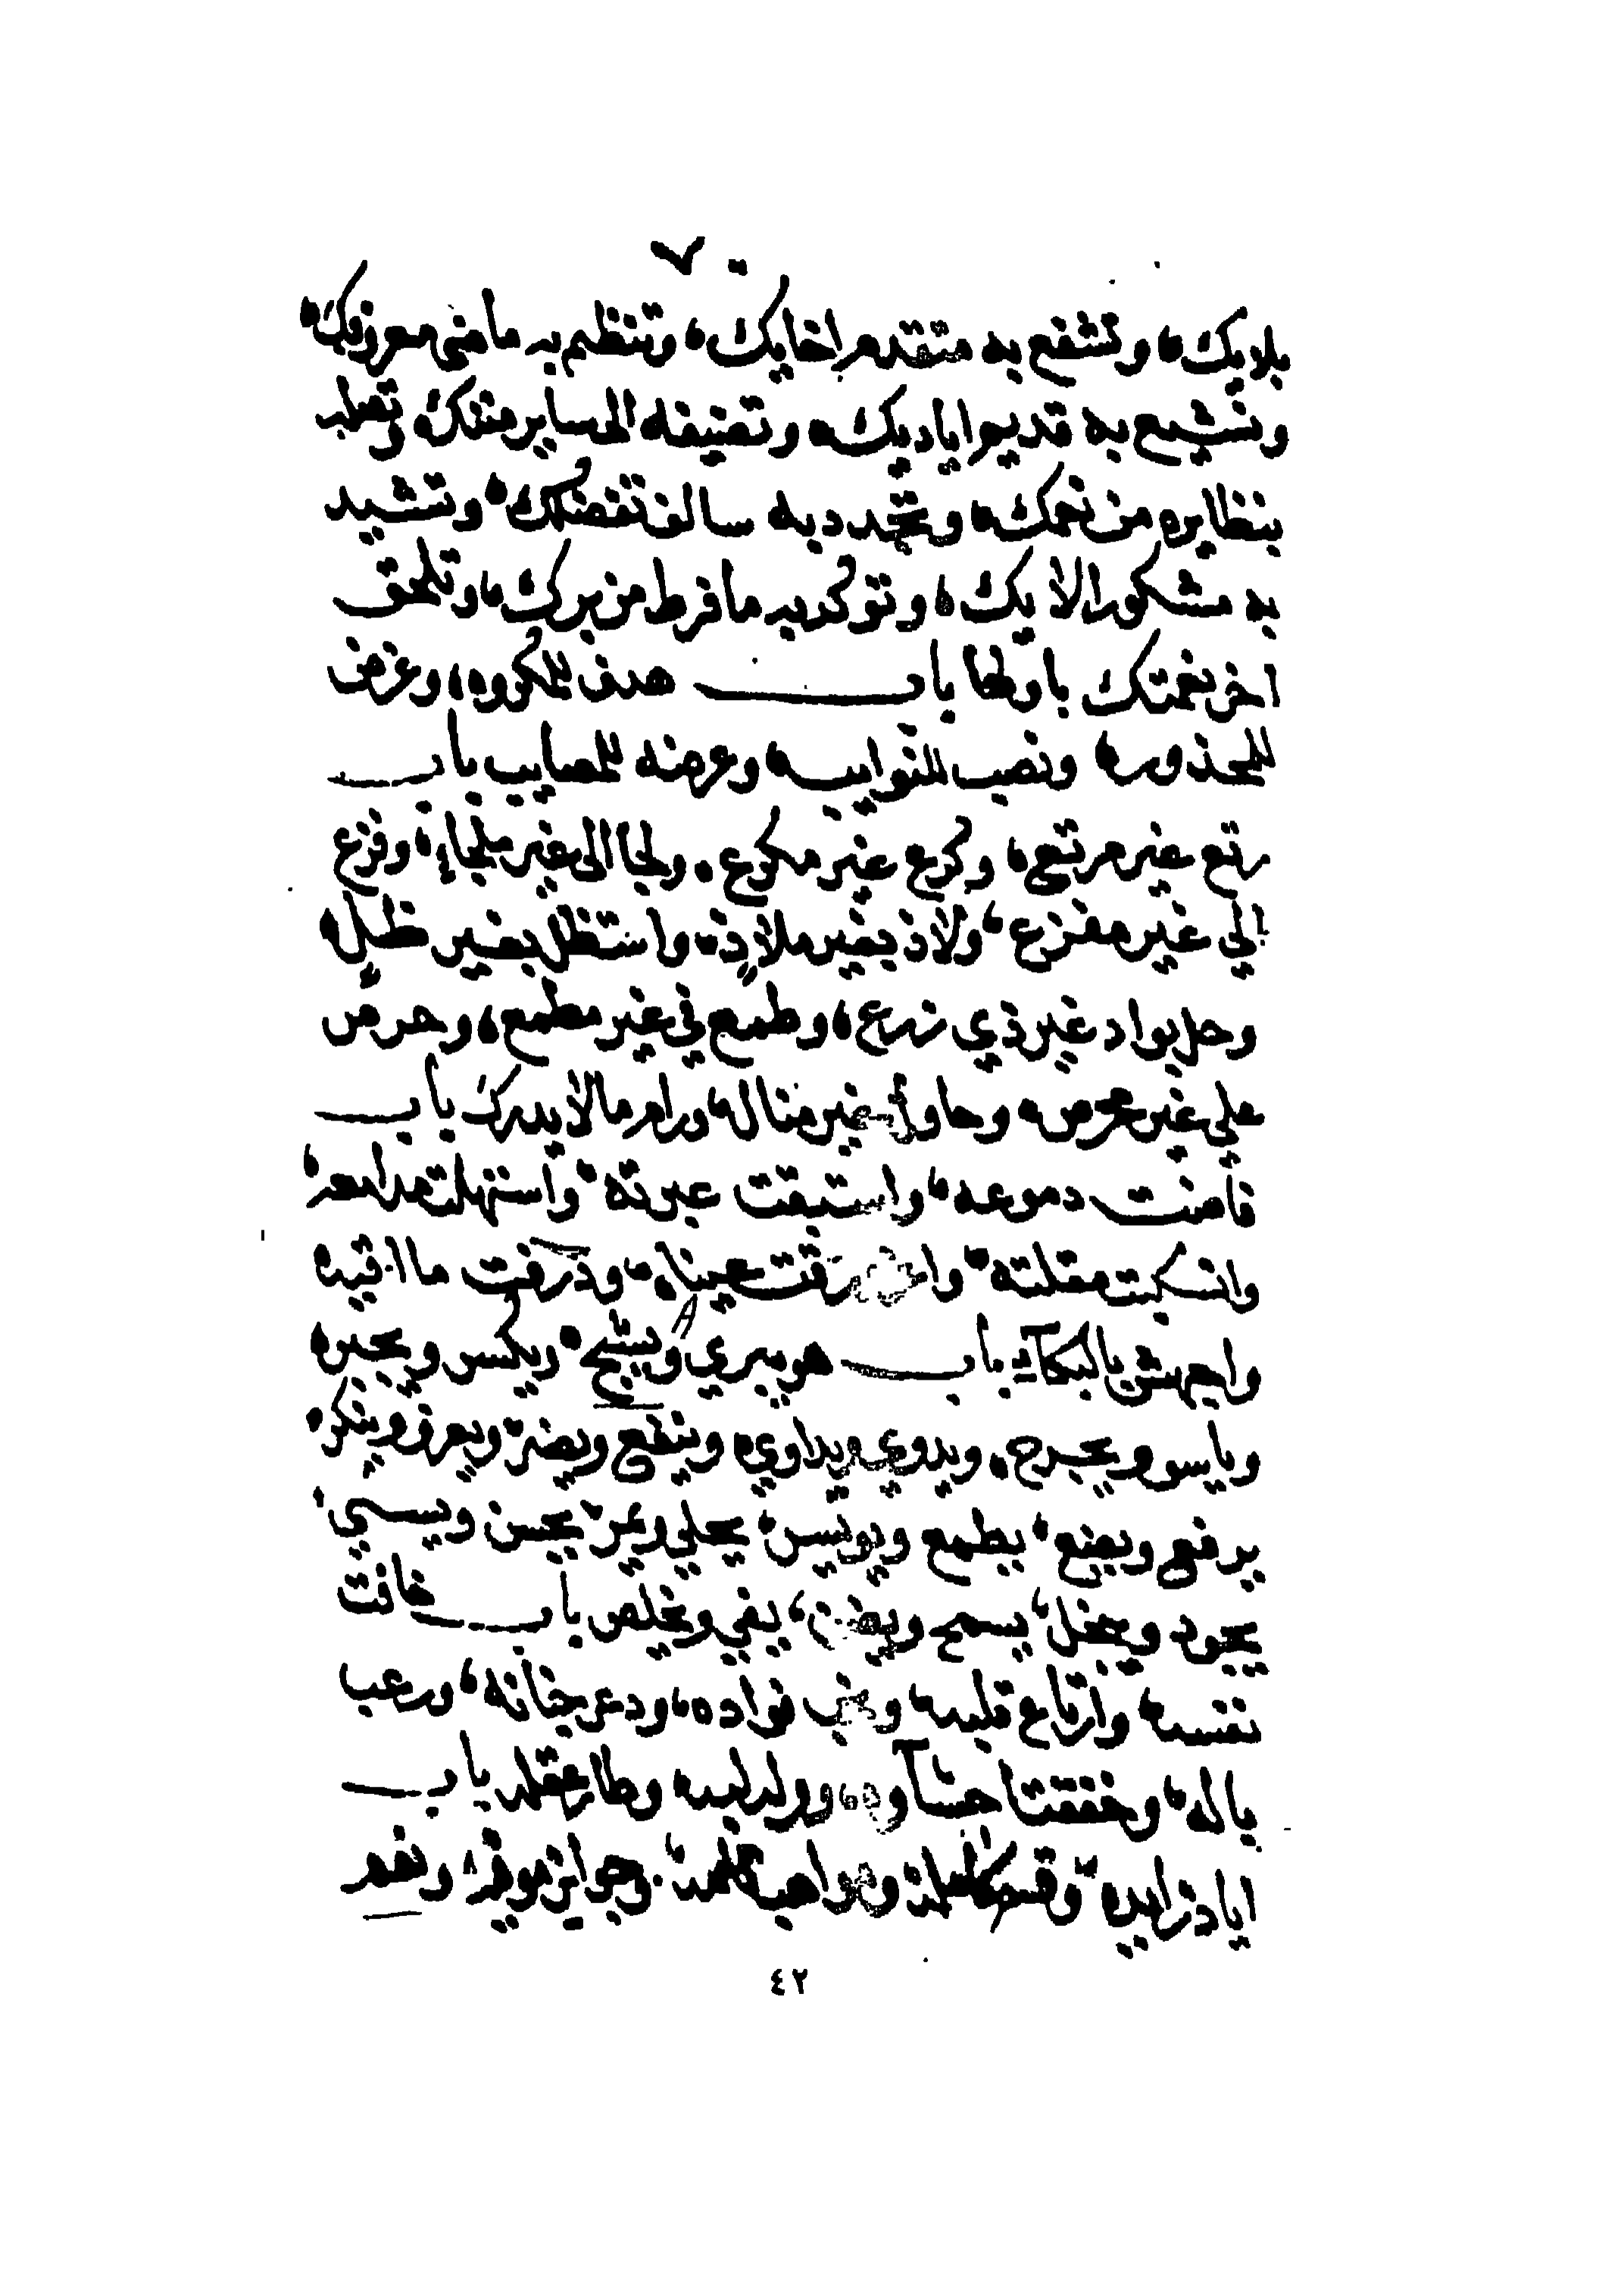 ٧
بلايك، وتشفع به متقدم اخايك، وتنظم به ماضي معروفك
وتشيع به قديم اياديك، وتضيفه الى ساير مننك
بنظايره من نعمك، وتجدد به سالف تفضلك، وتشيد
به مشكور الايك، وتوكد به ما فرط من برك، وتلحق
اخر نعمتك باولها باب هدف للمكروه، وغرض
للمحذور، ونصب للنوايب، وعرضة للمصايب باب
رتع غير مرتع، وكرع غير مكرع، ولجا الى غير ملجاء، وفزع
الي غير مفزع، ولاذ بغير ملاذ، واستظل بغير ظل
وحل بواد غير ذي زرع، وطمع في غير مطمع، وحرص
علي غير محرص، وحاول غير منال، ورام مالا يدرك باب
فاضت دموعه، واستبقت عبرته، واستهلت مدامعه
وانسكبت مقلته، واغرورقت عيناه، وذرفت ما اقيه
واجهش بالبكآء باب هو يبري ويشج، ويكسر ويجبر
وياسو ويجرح، ويدوي ويداوي، وينفع ويضر، ويعرف وينكر
يرفع ويضع، يطمع ويويس، يحلي ويمر، يحسن ويسي
يجود ويبخل، يسمح ويضن، يفي باب خانت
نفسه، وارتاع قلبه، فواده، وذعر جنانه، ورعب
باله، وخفقت احشآوه، ووله لبه، وطار عقله باب
اياد زايده، وقسم كامله، ومواهب وجوايز موفره، ونعم
٤٢